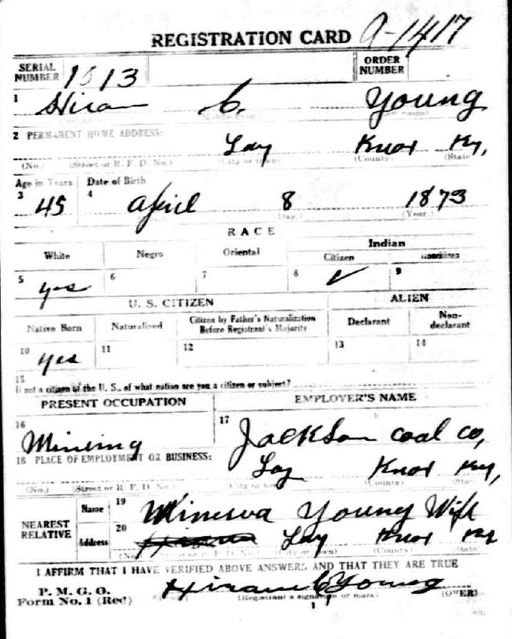 REGISTRATION CARD A-1417
SERIAL NUMBER 1513 ORDER NUMBER
1 Hiram C. Young
2 PERMANENT HOME ADDRESS:
Lay Knox Ky,
(No.) (Street or R. F. D. No.) (City or town) (County) (State)
Age in Years Date of Birth
3 45 4 April 8 1873
(Day.) (Year.)
RACE
White Negro Oriental Indian
Citizen Noncitizen
5 yes 6 7 8 ✓ 9
U. S. CITIZEN ALIEN
Native Born Naturalized Citizen by Father's Naturalization Before Registrant's Majority Declarant Non-declarant
10 yes 11 12 13 14
15
If not a citizen of the U. S., of what nation are you a citizen or subject?
PRESENT OCCUPATION EMPLOYER'S NAME
16 Mining 17 Jackson coal co,
18 PLACE OF EMPLOYMENT OR BUSINESS:
Lay Knox Ky,
(No.) (Street or R. F. D. No.) (City or town) (County) (State)
NEAREST RELATIVE Name 19 Minerva Young Wife
Address 20 Lay Knox Ky
(No.) (Street or R. F. D. No.) (City or town) (County) (State)
I AFFIRM THAT I HAVE VERIFIED ABOVE ANSWERS AND THAT THEY ARE TRUE
P. M. G. O.
Form No. 1 (Red) Hiram C Young
(Registrant's signature or mark.) (OVER)